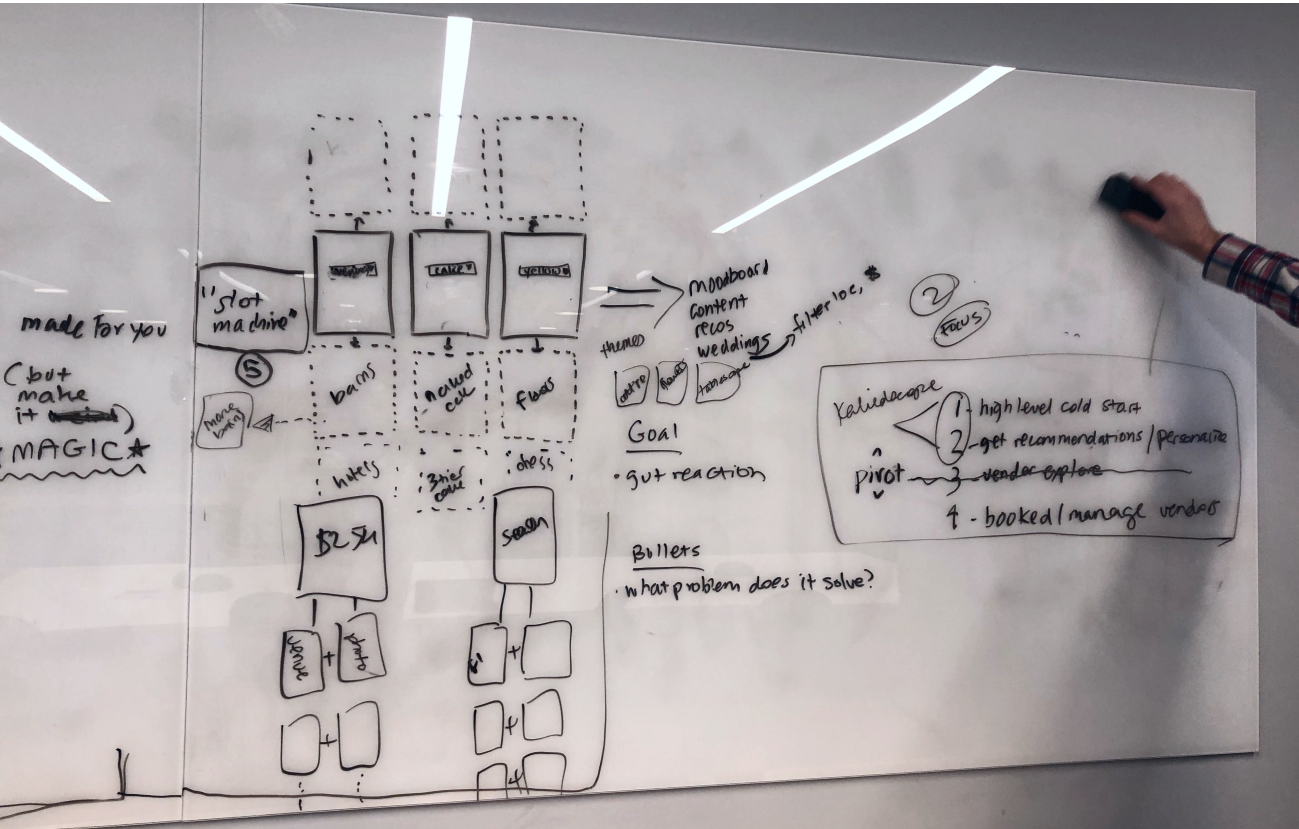 made for you
(but
make
it )
MAGIC★
"slot
machine"
5
cake
yellow
barns
naked
cake
hotels
3tier
cake
dress
$25K
season
venue
photo
+
+
+
+
+
moodboard
content
recos
weddings
filter loc, $
themes
Goal
· gut reaction
Bullets
· what problem does it solve?
2
FOCUS
Kaliedascope
1 - high level cold start
2 - get recommendations / personalize
pivot
3 - vendor explore
4 - booked / manage vendors